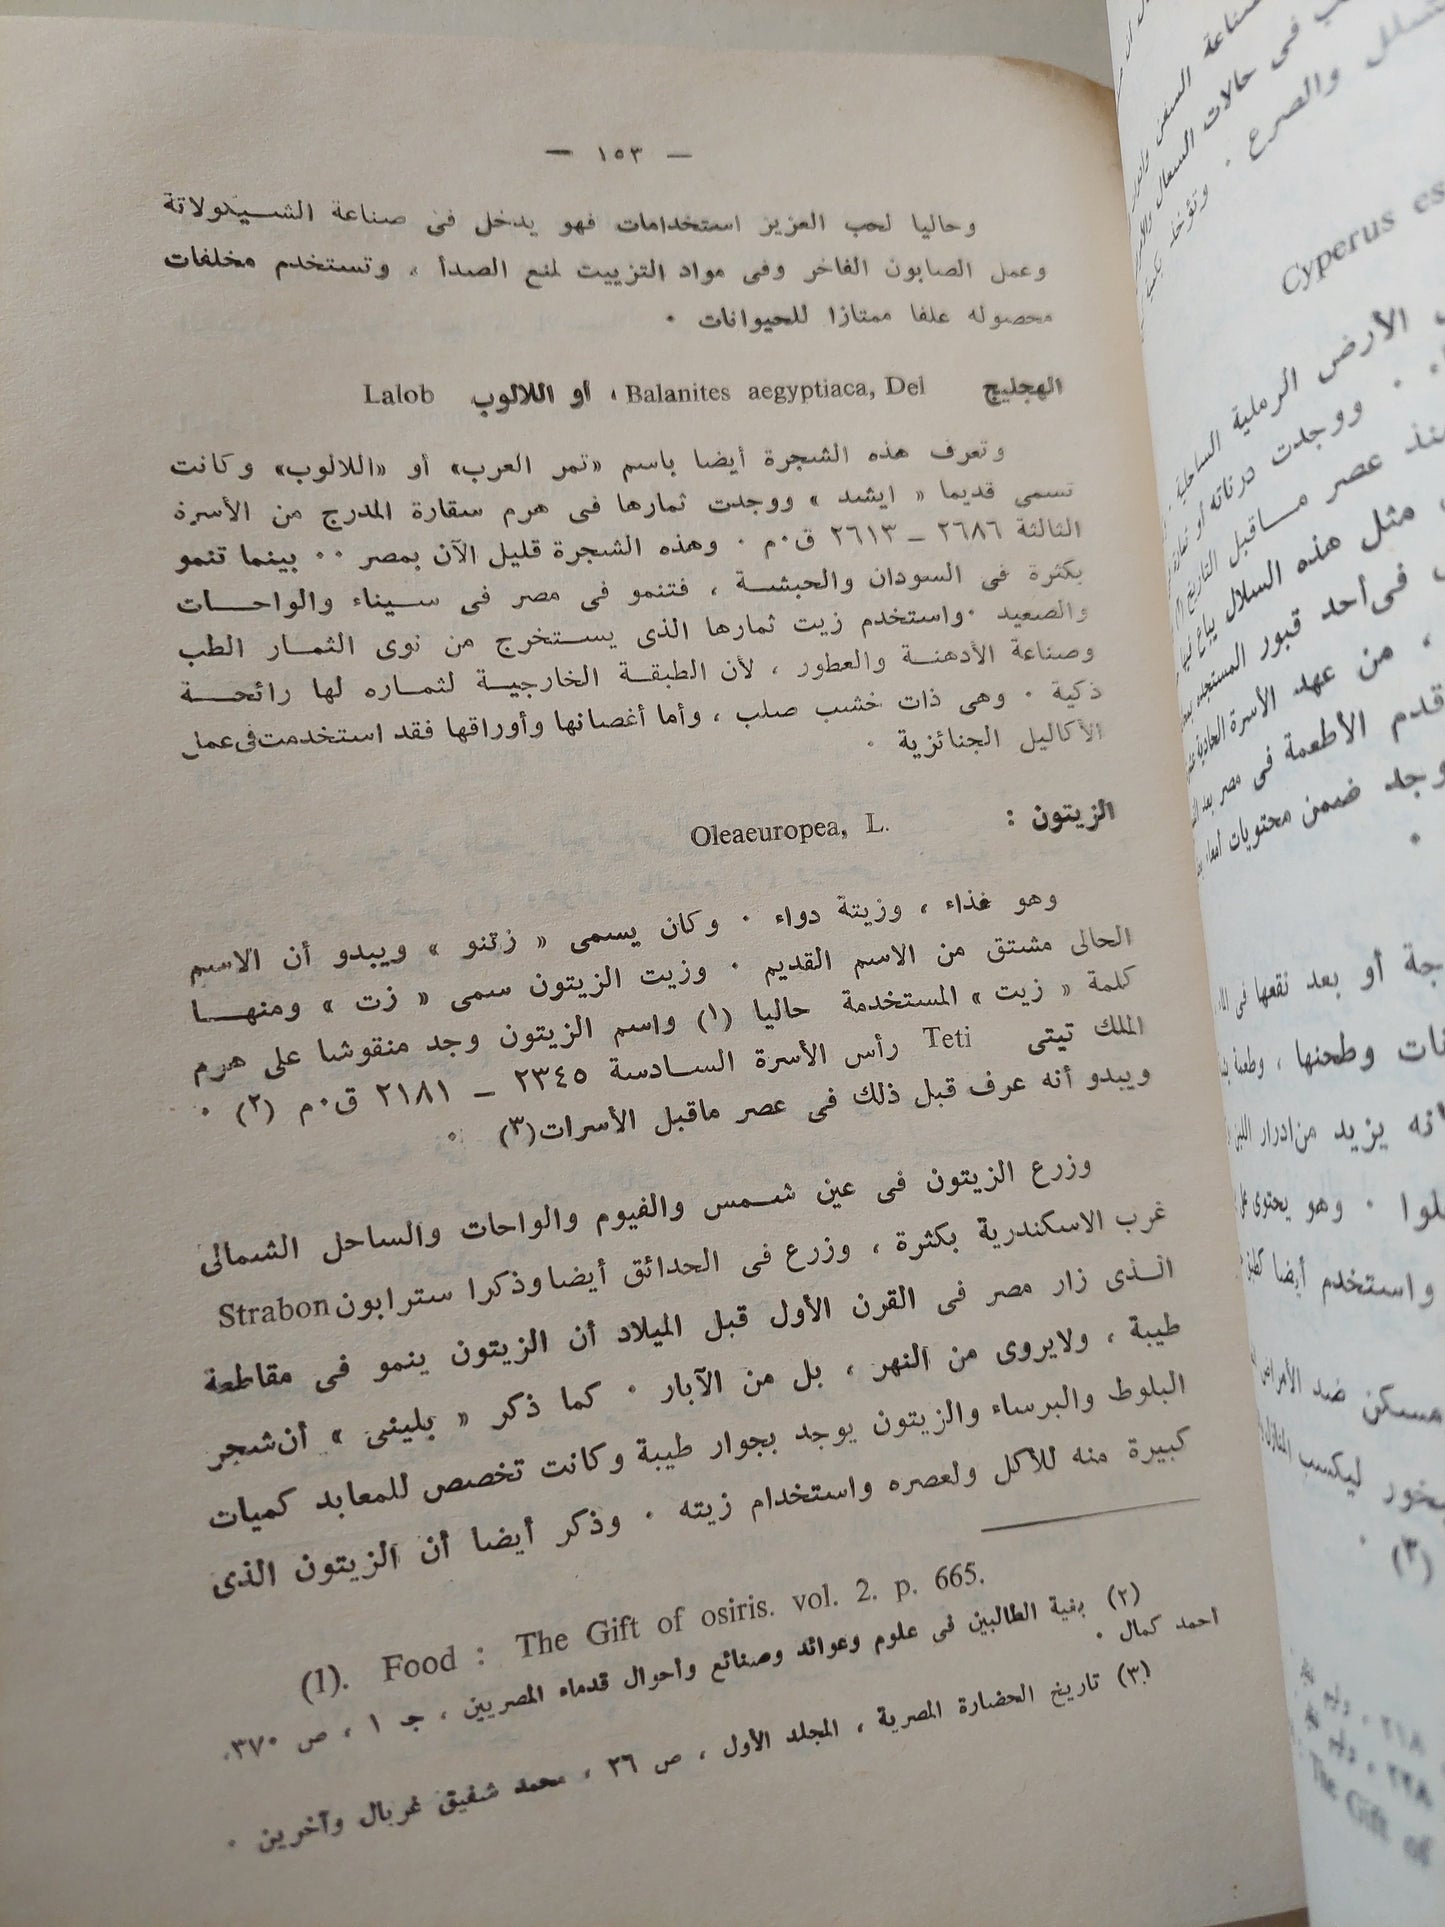 — ١٥٣ —
وحاليا لحب العزيز استخدامات فهو يدخل فى صناعة الشـيكولاتة
وعمل الصابون الفاخر وفى مواد التزييت لمنع الصدأ ، وتستخدم مخلفات
محصوله علفا ممتازا للحيوانات ٠
الهجليج Balanites aegyptiaca, Del ، أو اللالوب Lalob
وتعرف هذه الشجرة أيضا باسم «تمر العرب» أو «اللالوب» وكانت
تسمى قديما « ايشد » ووجدت ثمارها فى هرم سقارة المدرج من الأسرة
الثالثة ٢٦٨٦ ــ ٢٦١٣ ق٠م ٠ وهذه الشجرة قليل الآن بمصر ٠٠ بينما تنمو
بكثرة فى السودان والحبشـة ، فتنمو فى مصر فى سـيناء والواحـات
والصعيد ٠واستخدم زيت ثمارها الذى يسـتخرج من نوى الثمـار الطب
وصناعة الأدهنـة والعطور ، لأن الطبقـة الخارجيـة لثمـاره لها رائحـة
ذكية ٠ وهى ذات خشب صلب ، وأما أغصانها وأوراقها فقد استخدمت فى عمل
الأكاليل الجنائزية ٠
الزيتون : Oleaeuropea, L.
وهو غذاء ، وزيتة دواء ٠ وكان يسمى « زتنو » ويبدو أن الاسم
الحالى مشتق من الاسم القديم ٠ وزيت الزيتون سمى « زت » ومنهـا
كلمة « زيت » المستخدمة حاليا (١) واسم الزيتون وجد منقوشا على هرم
الملك تيتى Teti رأس الأسرة السـادسة ٢٣٤٥ ــ ٢١٨١ ق٠م (٢) ٠
ويبدو أنه عرف قبل ذلك فى عصر ماقبل الأسرات(٣) ٠
وزرع الزيتون فى عين شـمس والفيوم والواحات والساحل الشمالى
غرب الاسكندرية بكثرة ، وزرع فى الحدائق أيضا وذكرا سترابون Strabon
الـذى زار مصر فى القرن الأول قبل الميلاد أن الزيتون ينمو فى مقاطعة
طيبة ، ولايروى من النهر ، بل من الآبار ٠ كما ذكر « بلينى » أن شجر
البلوط والبرساء والزيتون يوجد بجوار طيبة وكانت تخصص للمعابد كميات
كبيرة منه للأكل ولعصره واستخدام زيته ٠ وذكر أيضا أن الزيتون الذى
(1). Food : The Gift of osiris. vol. 2. p. 665.
(٢) بغية الطالبين فى علوم وعوائد وصنائع وأحوال قدماء المصريين ، جـ ١ ، ص ٣٧٠،
أحمد كمال ٠
(٣) تاريخ الحضارة المصرية ، المجلد الأول ، ص ٣٦ ، محمد شفيق غربال وآخرين ٠
والصرع ٠
Cyperus es
الأرض الرملية الساحلية
ووجدت درناته أو
منذ عصر مـاقبل التاريخ
مثل هذه السلال يباع
فى أحد قبور
، من عهد الأسرة الحادية
قدم الأطعمة فى مصر بعد
وجد ضمن محتويات أمعاء
أو بعد نقعها فى
وطحنها ،
يزيد من ادرار اللبن
٠ وهو يحتوى على
واستخدم أيضا
مسكن ضد الأمراض
ليكسب المنازل
(٣) ٠
٢١٨
٢٢٨
The Gift of